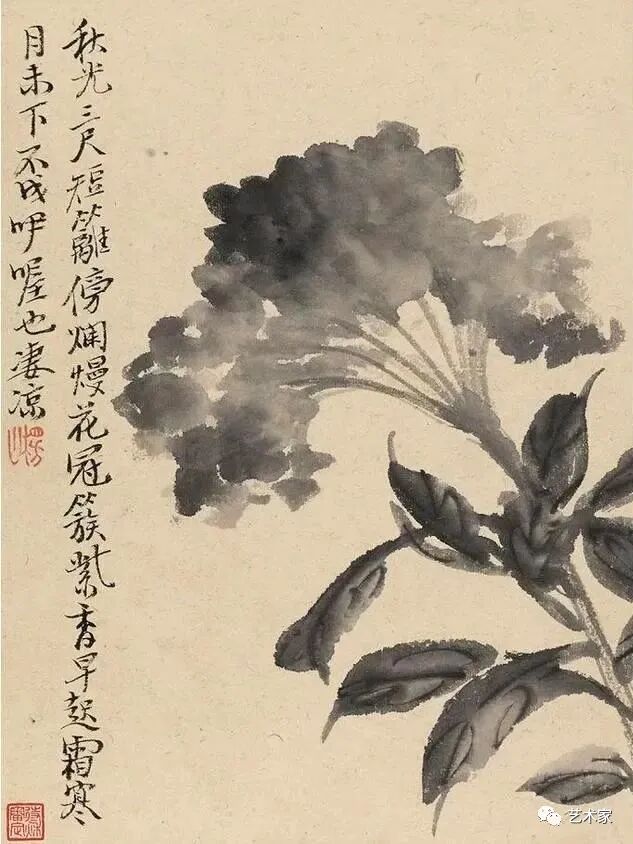 秋光三尺短籬傍爛熳花冠簇紫香早起霜寒
月未下不成咿喔也凄涼
艺术家